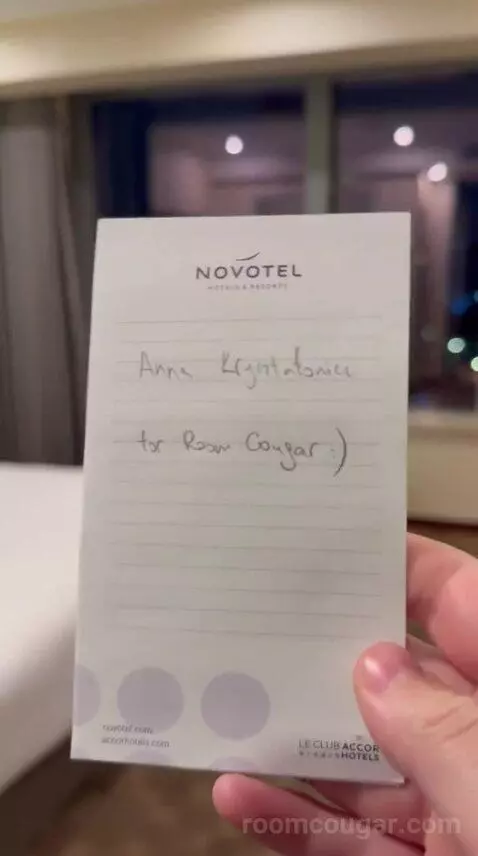 NOVOTEL
HOTELS & RESORTS
Anna
for Room Cougar :)
novotel.com
accorhotels.com
LE CLUB ACCOR
HOTELS
roomcougar.com